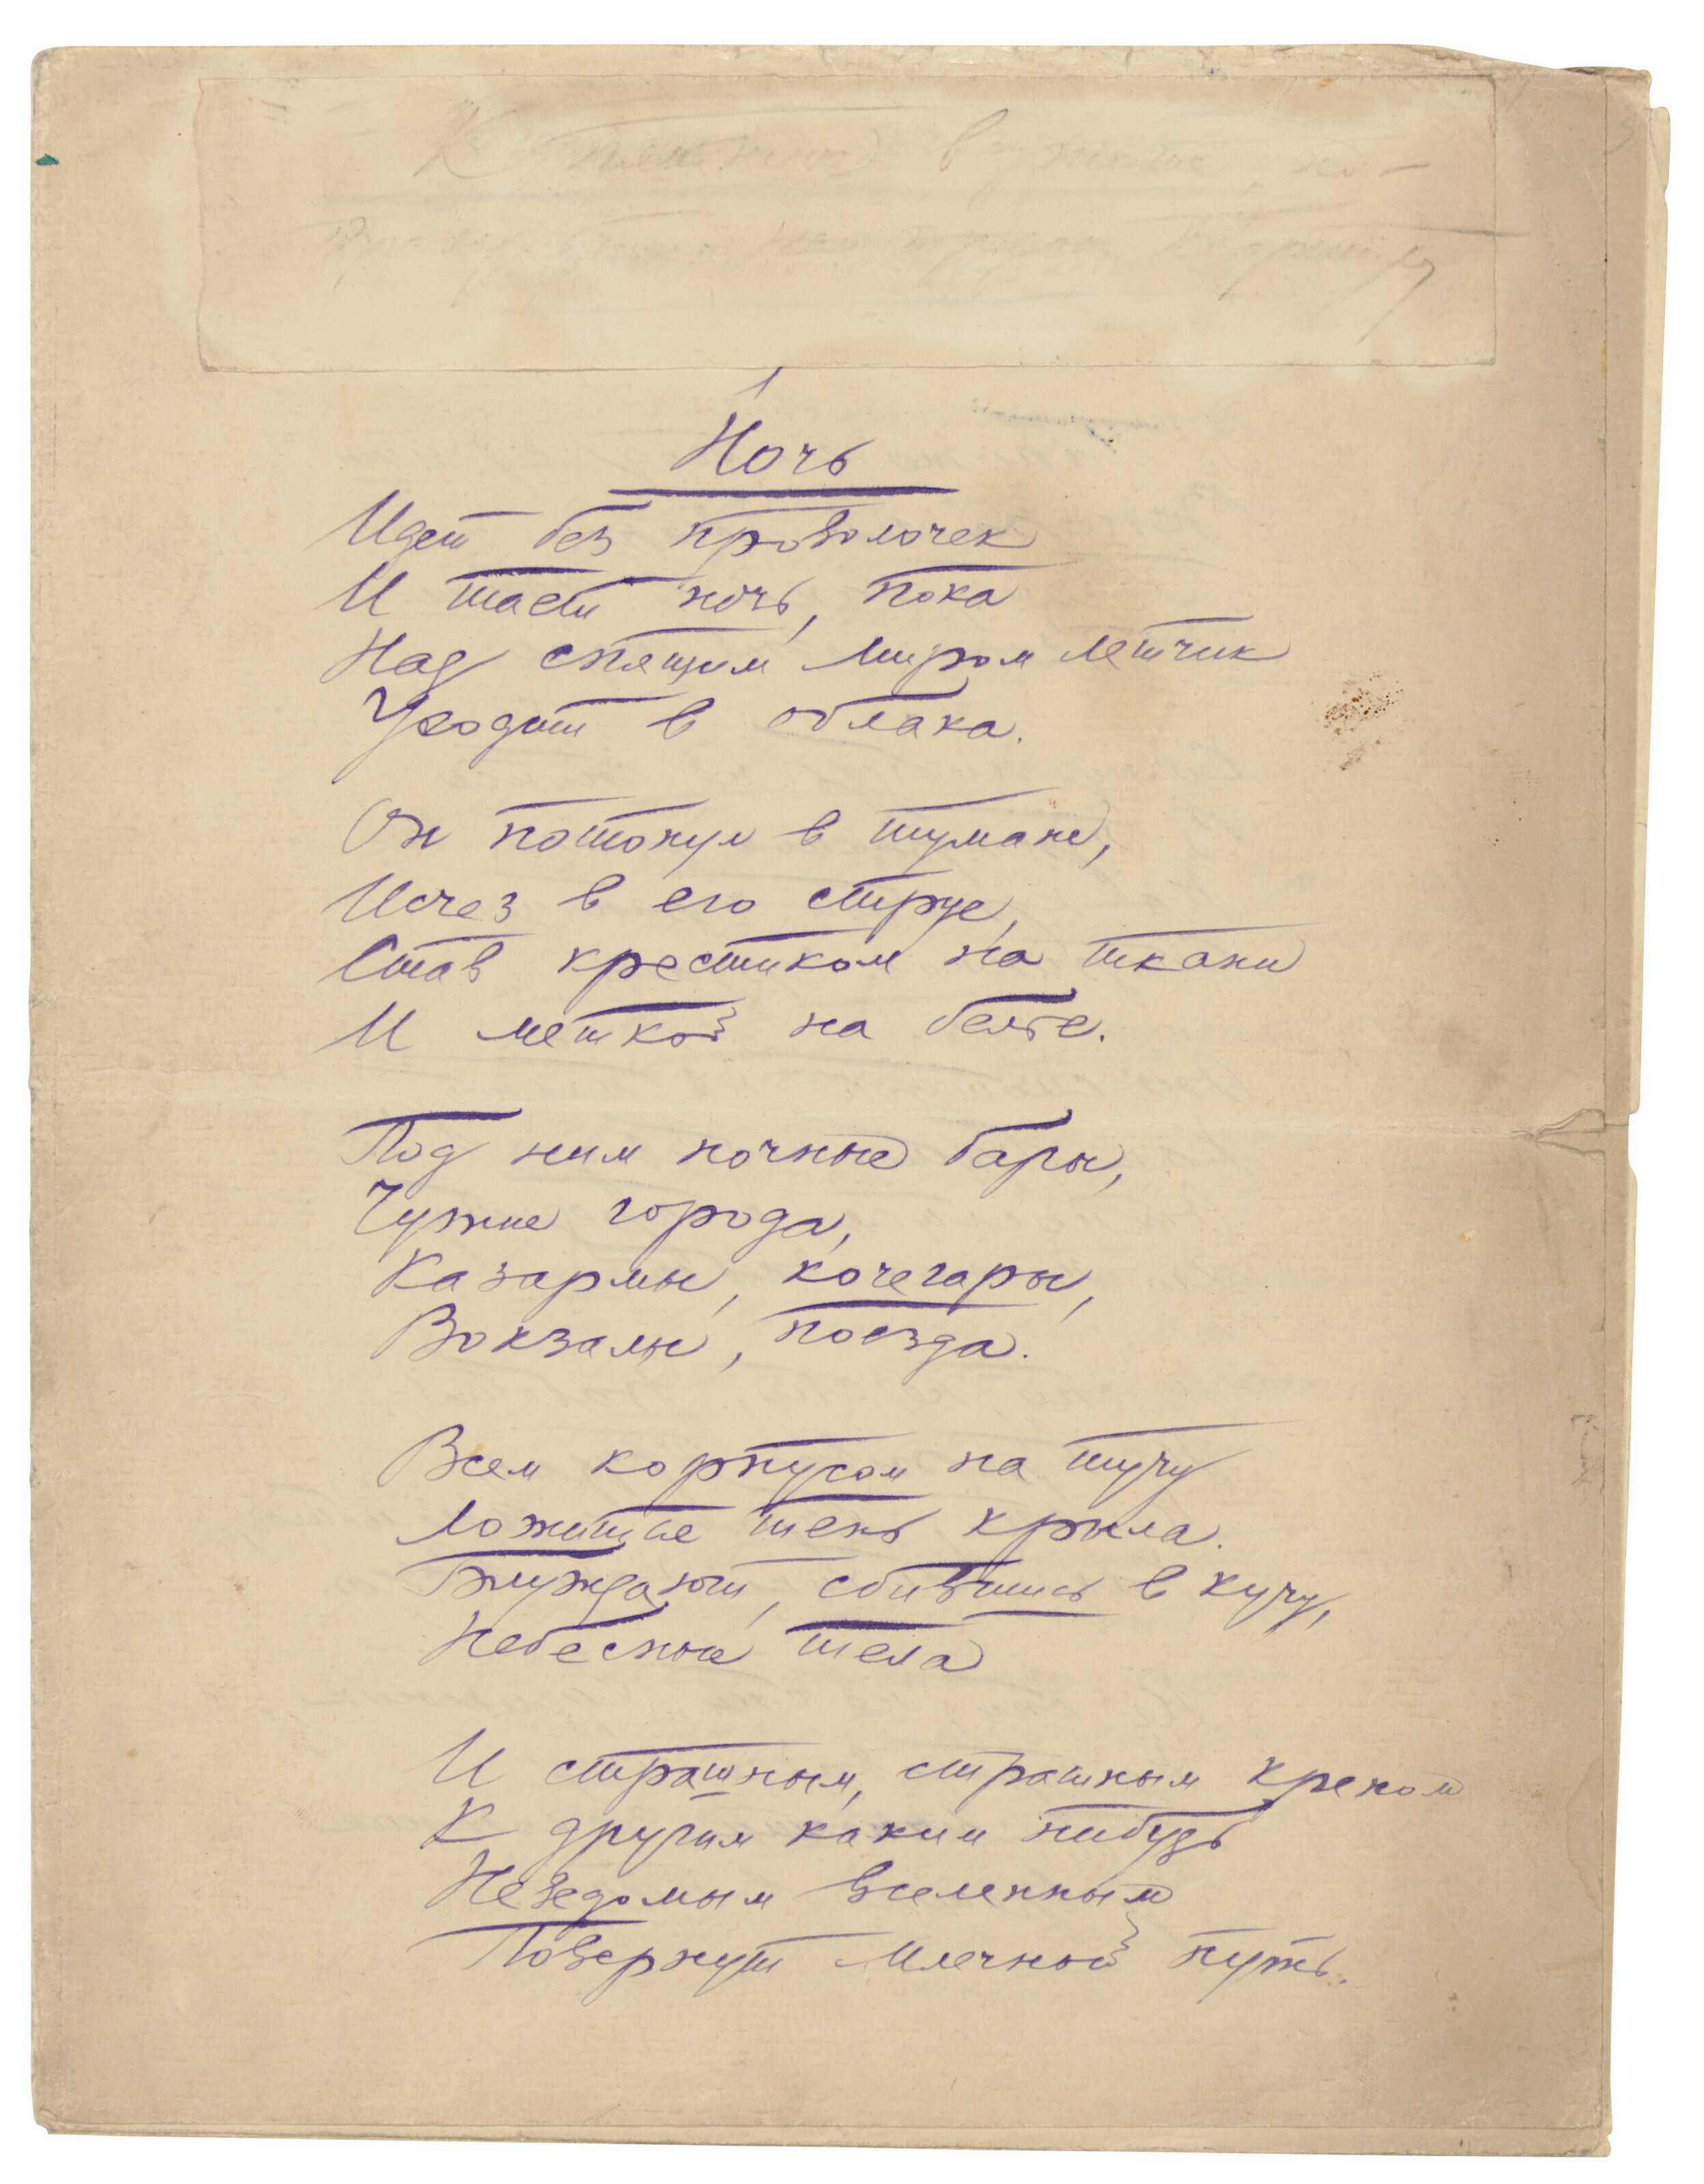 1
Ночь
Идет без проволочек
И тает ночь, пока
Над спящим миром летчик
Уходит в облака.
Он потонул в тумане,
Исчез в его струе,
Став крестиком на ткани
И меткой на белье.
Под ним ночные бары,
Чужие города,
Казармы, кочегары,
Вокзалы, поезда.
Всем корпусом на тучу
Ложится тень крыла.
Блуждают, сбившись в кучу,
Небесные тела
И страшным, страшным креном
К другим каким нибудь
Неведомым вселенным
Повернут млечный путь.